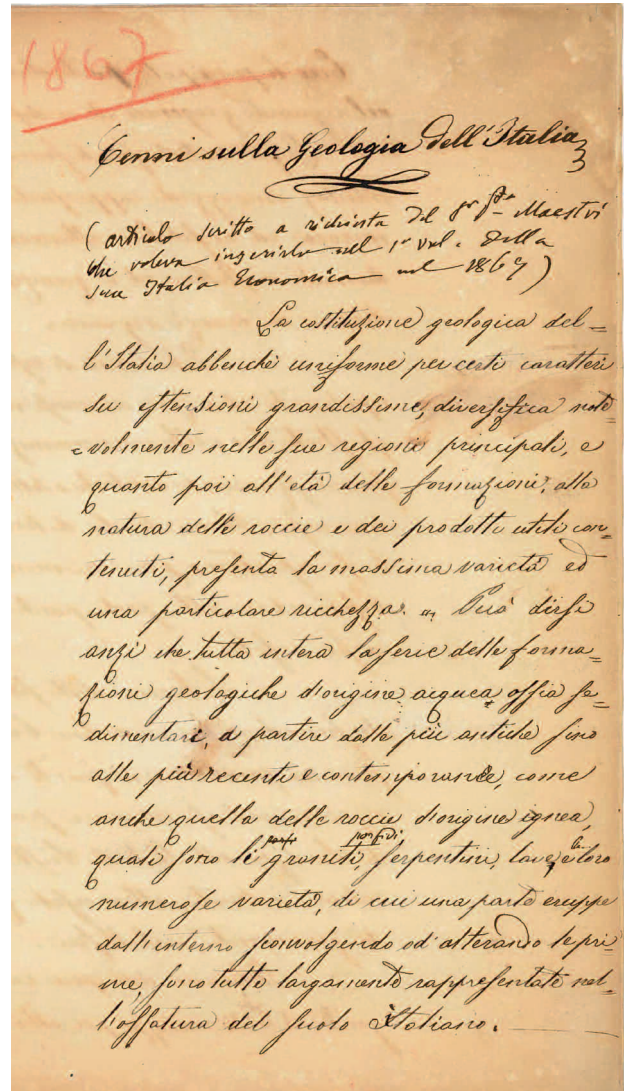 1867
Cenni sulla Geologia dell'Italia
(articolo scritto a richiesta del Maestri
che voleva inserirlo nel 1º vol. della
sua Italia Economica nel 1867)
La costituzione geologica del=
l'Italia abbenchè uniforme per certi caratteri
su estensioni grandissime, diversifica note
=volmente nelle sue regioni principali, e
quanto poi all'età delle formazioni, alla
natura delle roccie e dei prodotti utili con=
tenuti, presenta la massima varietà ed
una particolare ricchezza. = Può dirsi
anzi che tutta intera la serie delle forma=
zioni geologiche d'origine acquea ossia se=
dimentari, a partire dalle più antiche sino
alle più recenti e contemporanee, come
anche quella delle roccie d'origine ignea,
quali sono li graniti, porfidi, serpentini, lave, e le loro
numerose varietà, di cui una parte eruppe
dall'interno sconvolgendo od alterando le pri=
me, sono tutte largamente rappresentate nel=
l'ossatura del suolo Italiano.